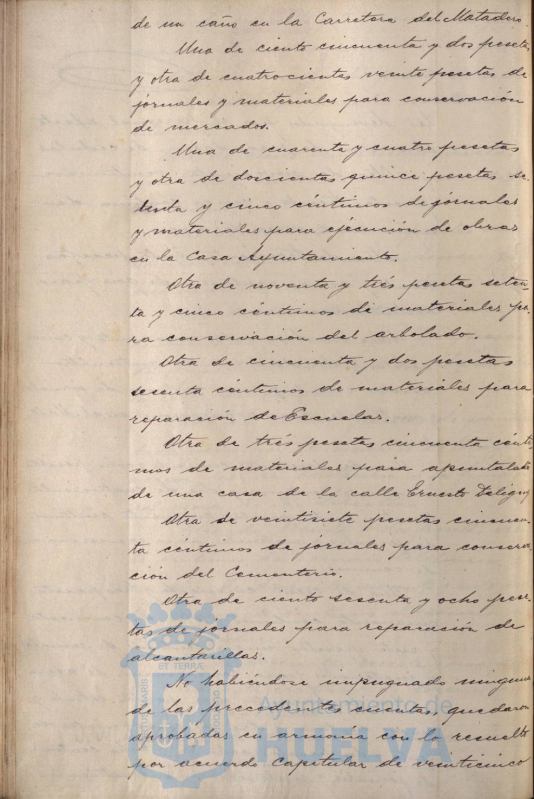 de un caño en la Carretera del Matadero.
Una de ciento cincuenta y dos pesetas
y otra de cuatrocientas veinte pesetas de
jornales y materiales para conservación
de mercados.
Una de cuarenta y cuatro pesetas
y otra de doscientas quince pesetas se-
tenta y cinco céntimos de jornales
y materiales para ejecución de obras
en la Casa Ayuntamiento.
Otra de noventa y trés pesetas seten-
ta y cinco céntimos de materiales pa-
ra conservación del arbolado.
Otra de cincuenta y dos pesetas
sesenta céntimos de materiales para
reparación de Escuelas.
Otra de trés pesetas cincuenta cénti-
mos de materiales para apuntalado
de una casa de la calle Ernesto Deligny
Otra de veintisiete pesetas cincuen-
ta céntimos de jornales para conserva-
ción del Cementerio.
Otra de ciento sesenta y ocho pese-
tas de jornales para reparación de
alcantarillas.
No habiéndose impugnado ninguna
de las precedentes cuentas, quedaron
aprobadas en armonía con lo resuelto
por acuerdo capitular de veinticinco
ET TERRÆ
Ayuntamiento de
HUELVA